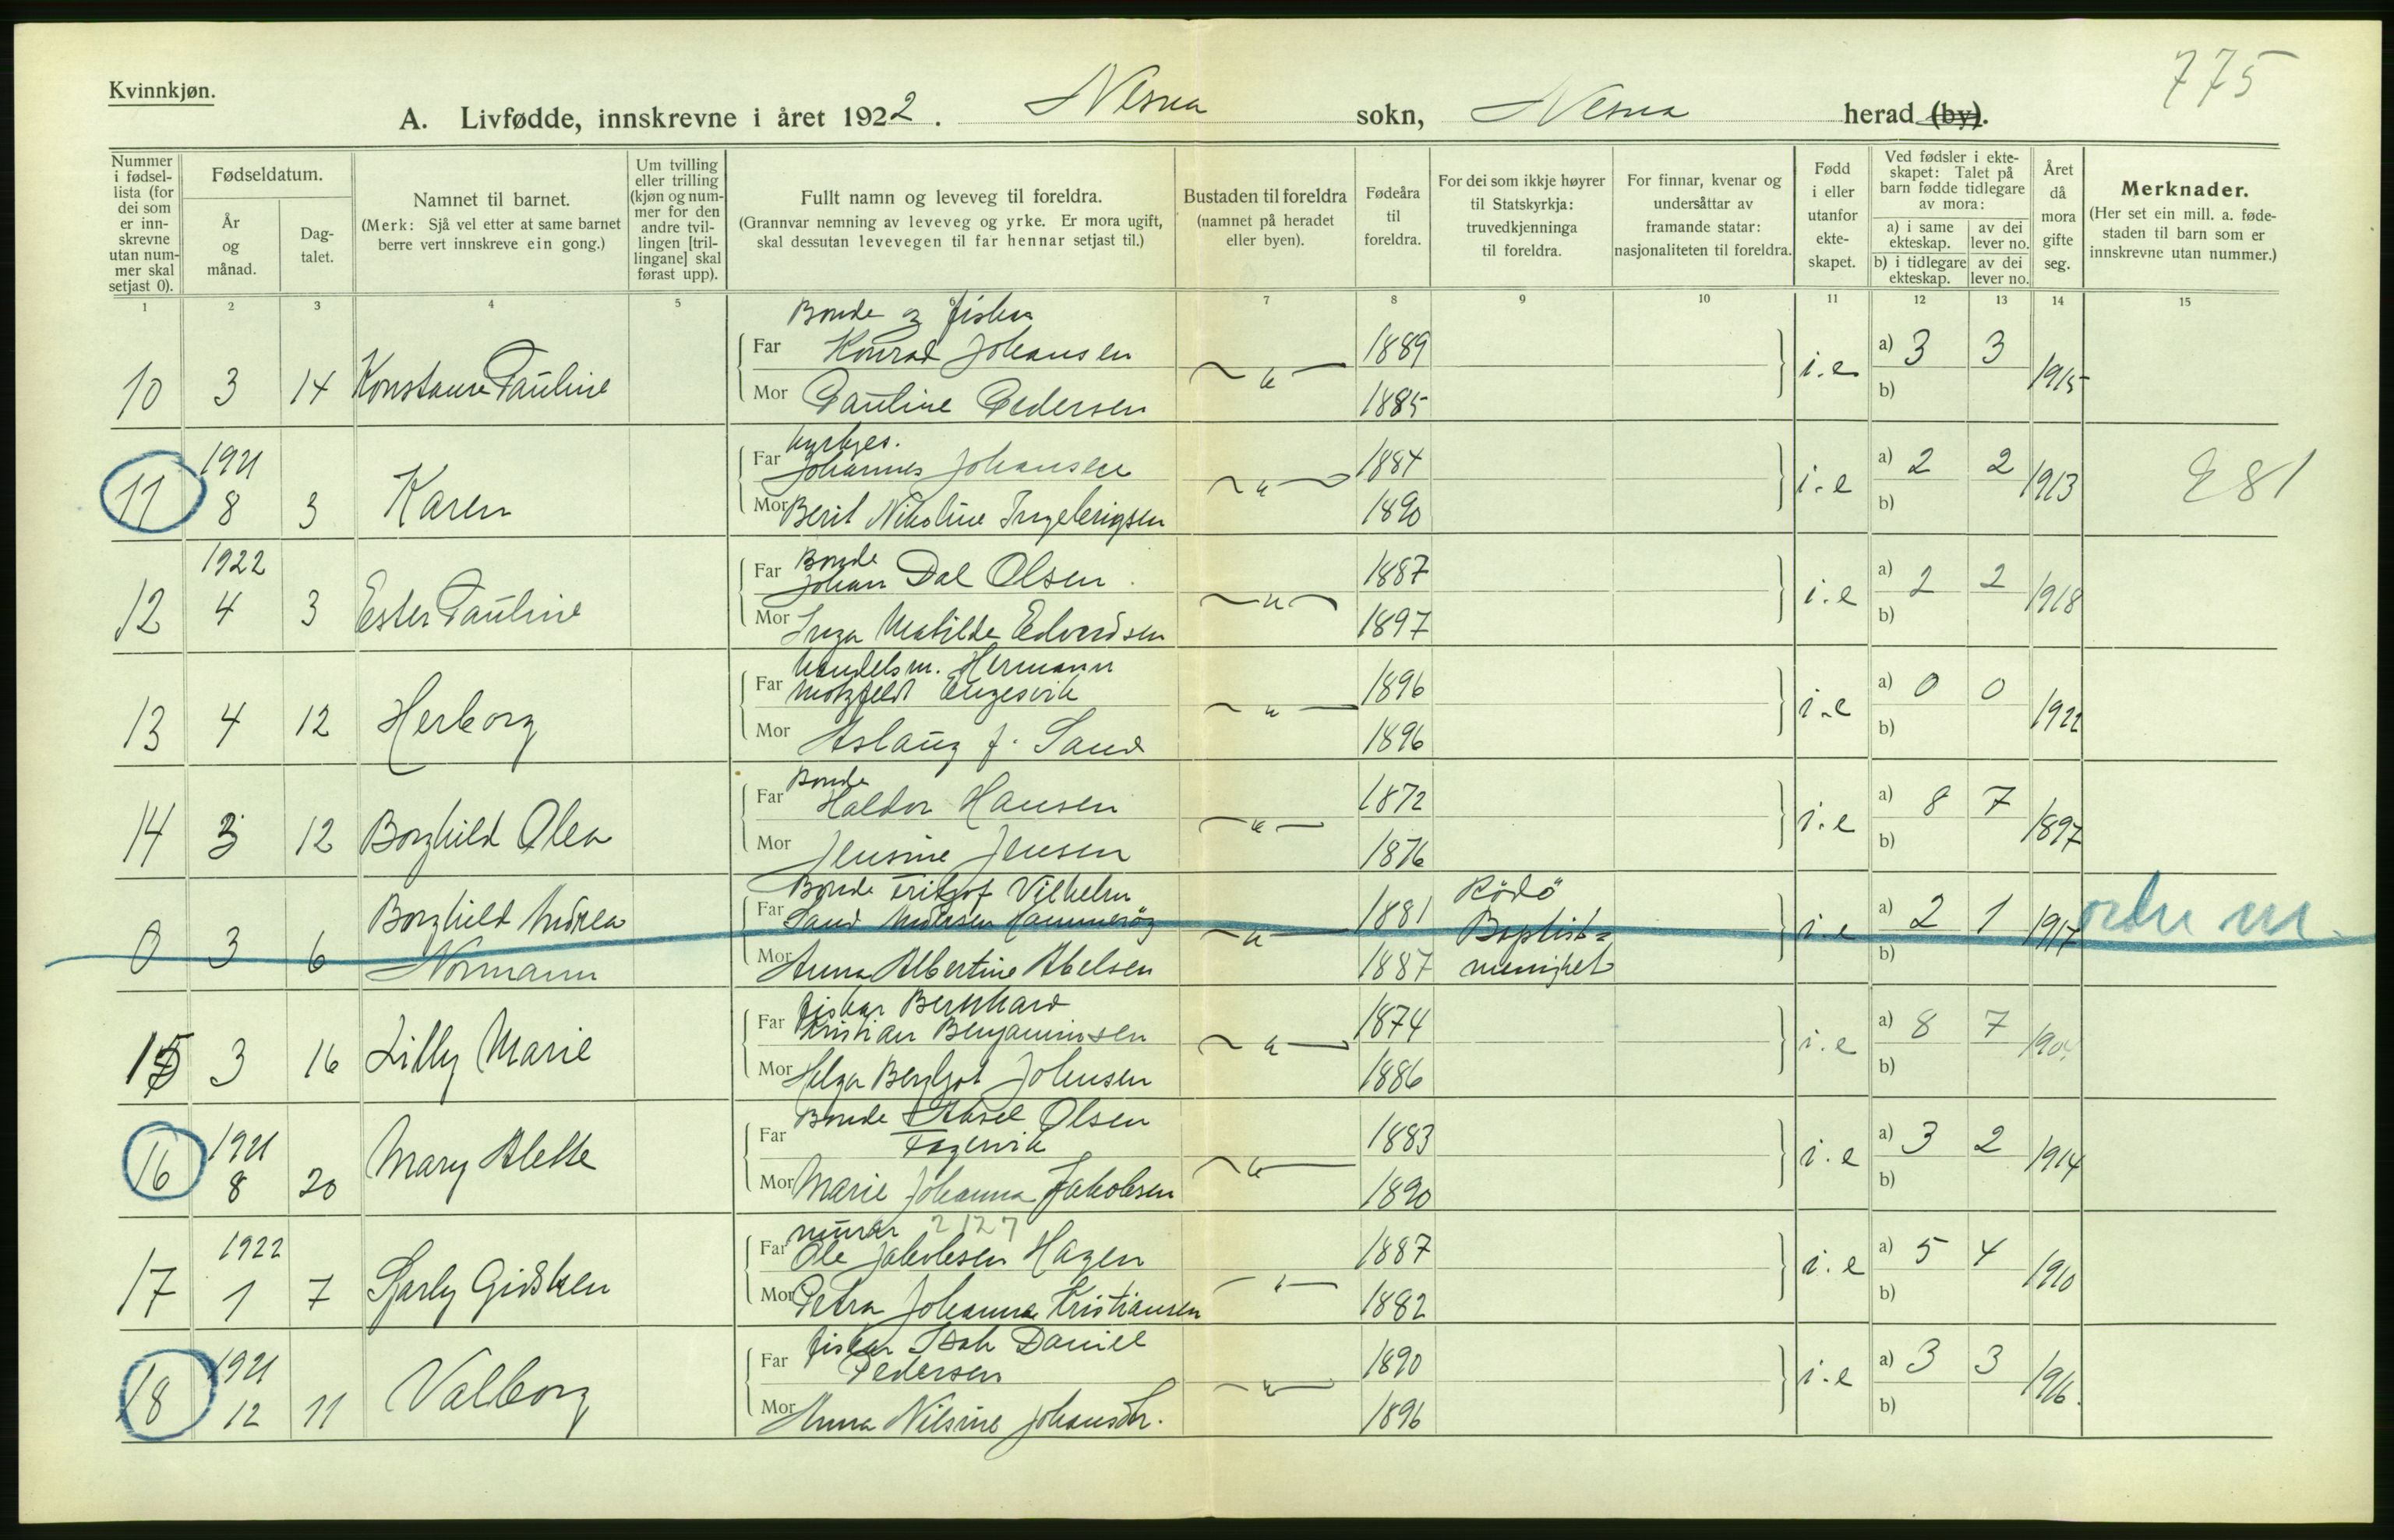 775
Kvinnkjøn.
A. Livfødde, innskrevne i året 1922. Nesna sokn, Nesna herad (by).
Nummer i fødsel-lista (for dei som er inn-skrevne utan num-mer skal setjast 0).
Fødseldatum.
År og månad.
Dag-talet.
Namnet til barnet.
(Merk: Sjå vel etter at same barnet berre vert innskreve ein gong.)
Um tvilling eller trilling (kjøn og num-mer for den andre tvil-lingen [tril-lingane] skal førast upp).
Fullt namn og leveveg til foreldra.
(Grannvar nemning av leveveg og yrke. Er mora ugift, skal dessutan levevegen til far hennar setjast til.)
Bustaden til foreldra
(namnet på heradet eller byen).
Fødeåra til foreldra.
For dei som ikkje høyrer til Statskyrkja: truvedkjenninga til foreldra.
For finnar, kvenar og undersåttar av framande statar: nasjonaliteten til foreldra.
Fødd i eller utanfor ekte-skapet.
Ved fødsler i ekte-skapet: Talet på barn fødde tidlegare av mora:
a) i same ekteskap.
av dei lever no.
b) i tidlegare ekteskap.
av dei lever no.
Året då mora gifte seg.
Merknader.
(Her set ein mill. a. føde-staden til barn som er innskrevne utan nummer.)
1 2 3 4 5 6 7 8 9 10 11 12 13 14 15
Bonde og fisker
Far Konrad Johansen 1889 a) 3 3
10 3 14 Konstanse Pauline — " — i.e 1915
Mor Pauline Pedersen 1885 b)
1921 kyrkjes.
Far Johannes Johansen 1884 a) 2 2
11 8 3 Karen — " — i.e 1913 E 81
Mor Berit Nikoline Ingebrigsen 1890 b)
1922 Bonde
Far Johan Dal Olsen 1887 a) 2 2
12 4 3 Ester Pauline — " — i.e 1918
Mor Inga Matilde Edvardsen 1897 b)
handelsm. Hermann
Far Motzfeldt Engesvik 1896 a) 0 0
13 4 12 Herborg — " — i.e 1922
Mor Aslaug f. Sand 1896 b)
Bonde
Far Haldor Hansen 1872 a) 8 7
14 3 12 Borghild Olea — " — i.e 1897
Mor Jensine Jensen 1876 b)
Bonde Fritjof Vilhelm Rödö
Far Sand Andersen Hammerög 1881 Baptist= a) 2 1
0 3 6 Borghild Andrea Normann — " — i.e 1917
Mor Anna Albertine Abelsen 1887 menighet b)
fiskar Bernhard
Far Kristian Benjaminsen 1874 a) 8 7
15 3 16 Lilly Marie — " — i.e
Mor Helga Bergljot Johnsen 1886 b)
1921 Bonde Aksel Olsen
Far Fagervik 1883 a) 3 2
16 8 20 Mary Alette — " — i.e 1914
Mor Marie Johanna Jakobsen 1890 b)
1922 murar 2127
Far Ole Jakobsen Hagen 1887 a) 5 4
17 1 7 Sjarly Gidsken — " — i.e 1910
Mor Petra Johanna Kristiansen 1882 b)
1921 fiskar Isak Daniel
Far Pedersen 1890 a) 3 3
18 12 11 Valborg — " — i.e 1916.
Mor Anna Nilsine Johansdtr. 1896 b)